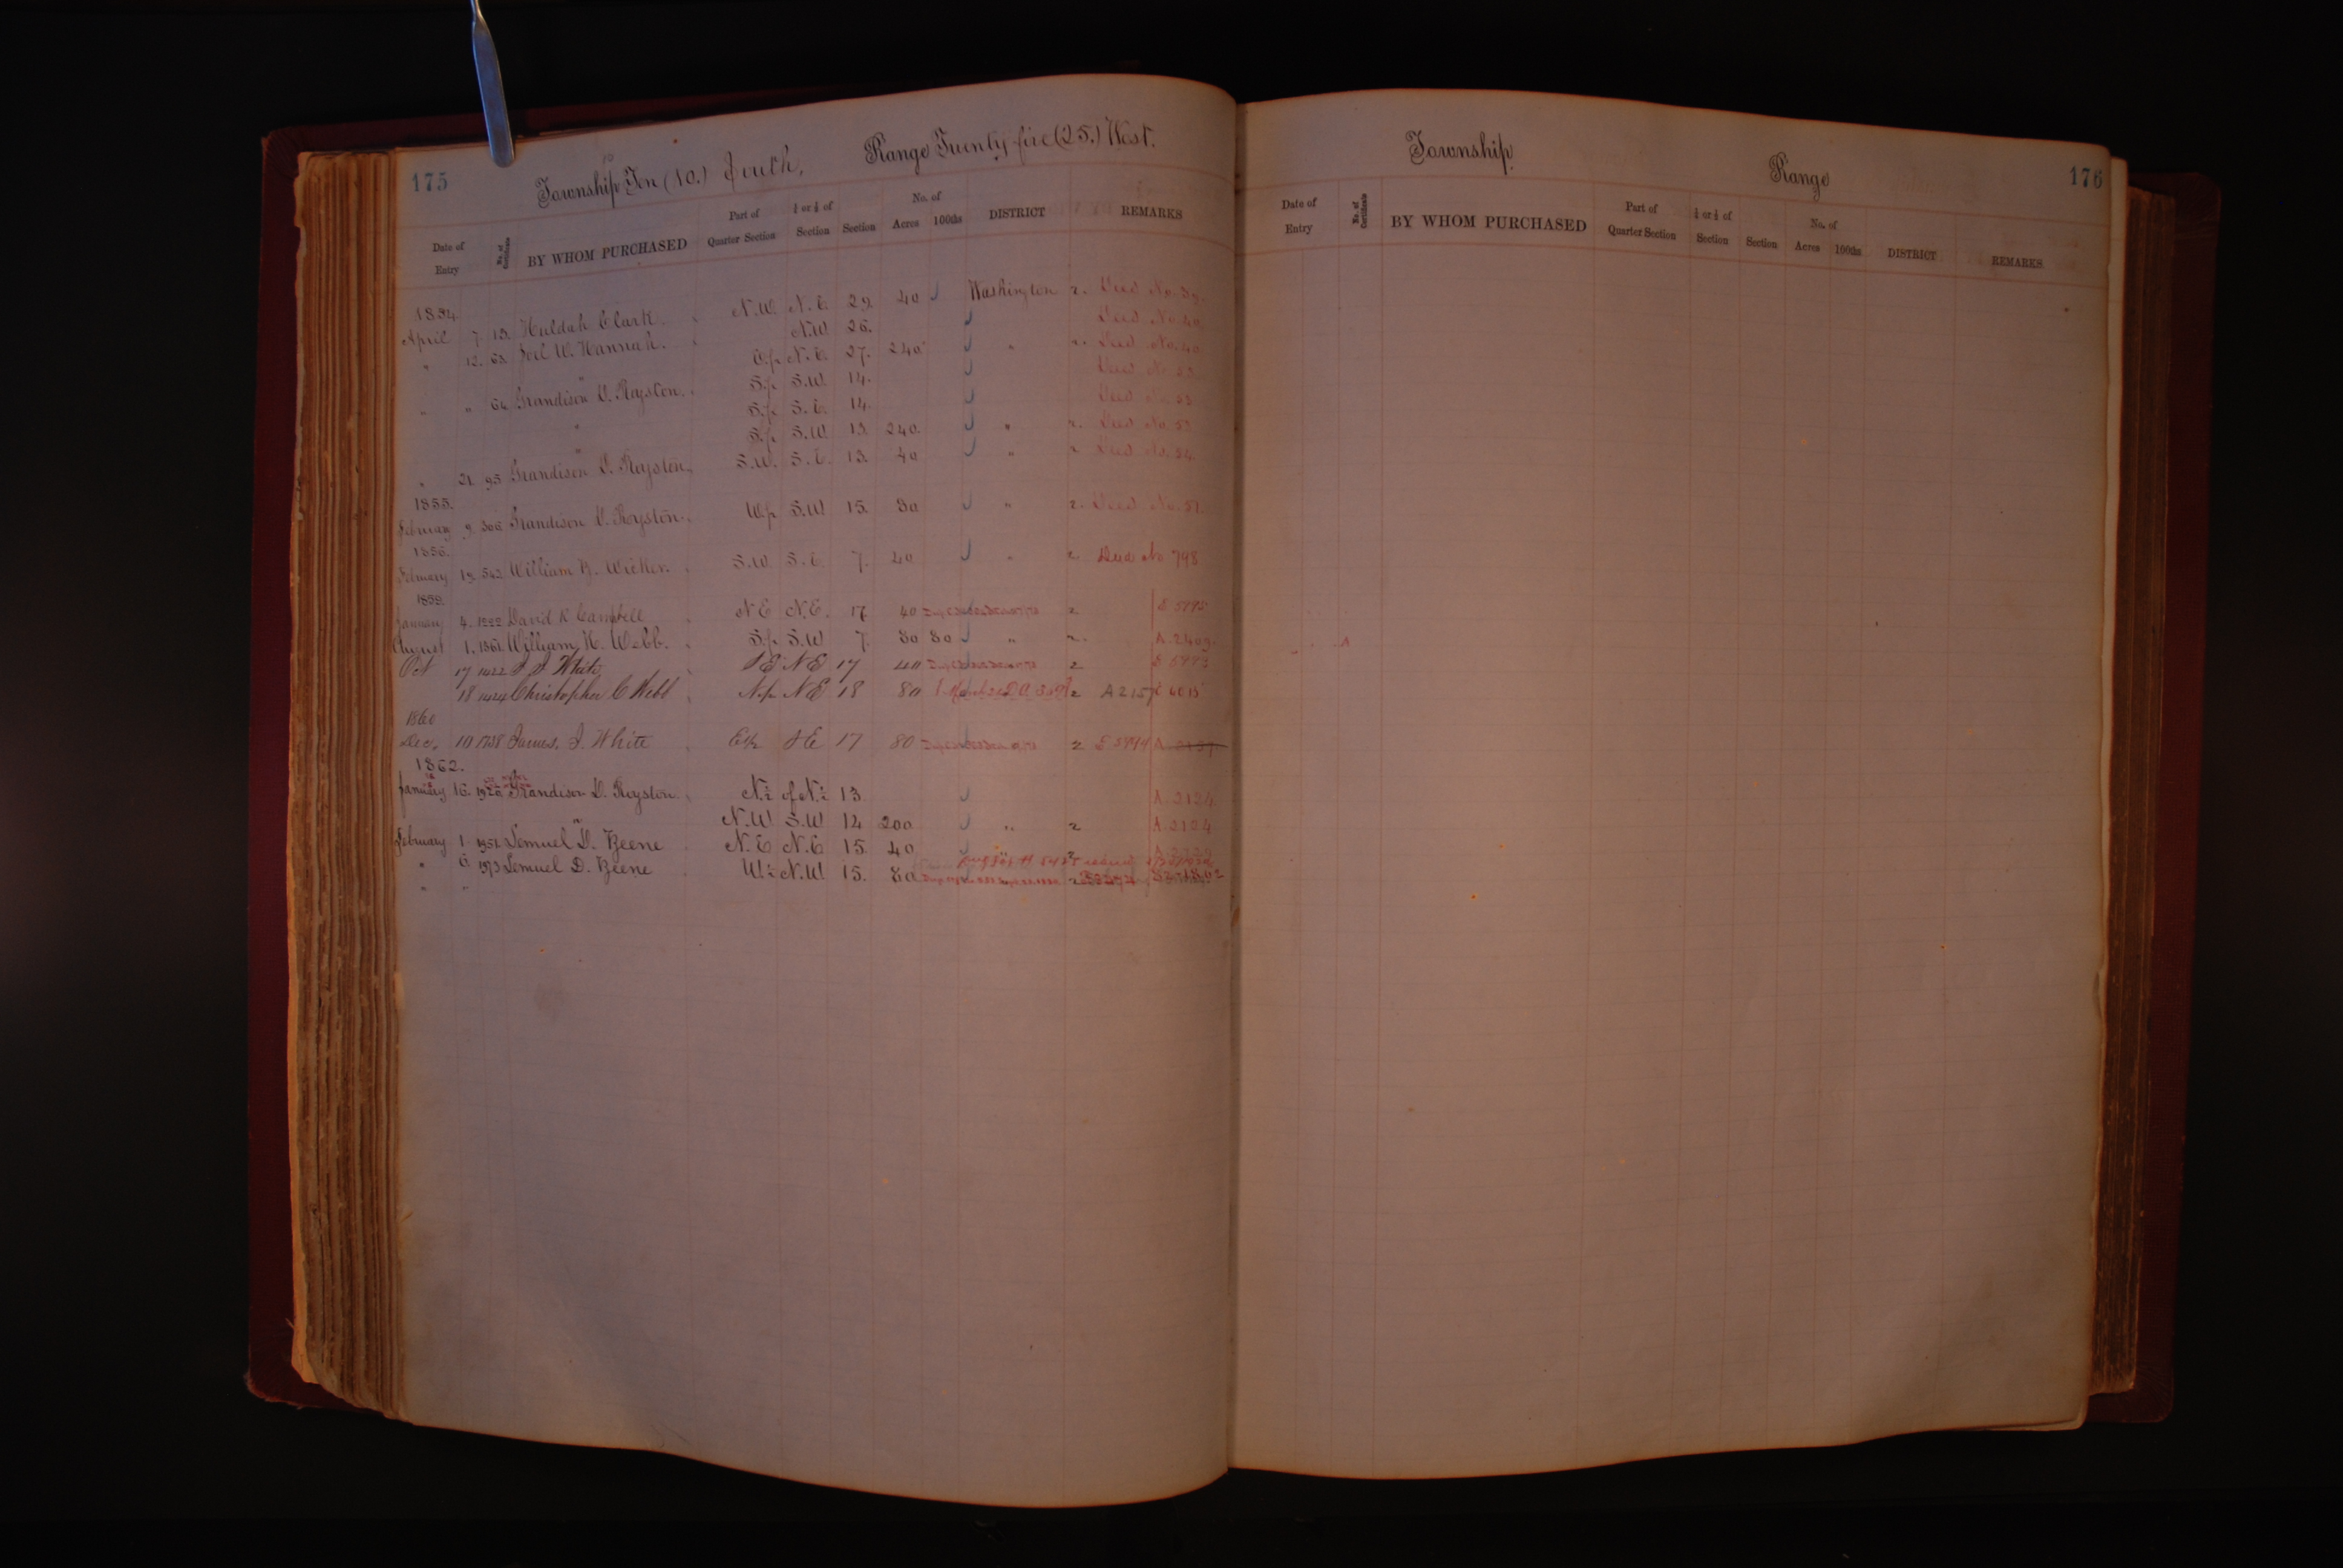 175
Township Ten (10.) South, Range Twenty five (25.) West.
Date of Entry No. of Certificate BY WHOM PURCHASED Part of Quarter Section ¼ or ½ of Section Section No. of Acres 100ths DISTRICT REMARKS
1854
April 7. 13. Huldah Clark. N.W. N.E. 29. 40 Washington 2. Deed No. 39.
" 12. 63. Joel W. Hannah. N.W. 26. Deed No. 40
" E.½ N.E. 27. 240 " 2. Deed No. 40
" " 64 Grandison D. Royston. S.½ S.W. 14. Deed No. 53
" S.½ S.E. 14. Deed No. 53
" S.½ S.W. 13. 240. " 2. Deed No. 53
" 21. 95 Grandison D. Royston. S.W. S.E. 13. 40 " 2 Deed No. 54
1855.
February 9. 306 Grandison D. Royston. W.½ S.W. 15. 80 " 2. Deed No. 51.
1856.
February 19. 542 William B. Wicker. S.W. S.E. 7. 40 " 2 Deed No 798
1859.
January 4. 1222 David R Campbell N E N.E. 17 40 2 E 5995
August 1. 1361. William H. Webb. S.½ S.W 7. 80 80 " 2. A. 2409.
Oct 17 1422 White S E N E 17 40 2 E 5993
18 1424 Christopher C Webb N.½ N E 18 80 2 A 2157 E 6015
1860
Dec. 10 1738 James J. White E½ S E 17 80 2 E 5994 A
1862.
January 16. 1920 Grandison D. Royston. N.½ of N.½ 13. A. 2124
" N.W. S.W 14 200 " 2 A. 2124
February 1 1951. Lemuel D. Beene N.E N.E 15. 40
" 6 1973 Lemuel D. Beene W.½ N.W. 15. 80 2
" "
Township Range 176
Date of Entry No. of Certificate BY WHOM PURCHASED Part of Quarter Section ¼ or ½ of Section Section No. of Acres 100ths DISTRICT REMARKS